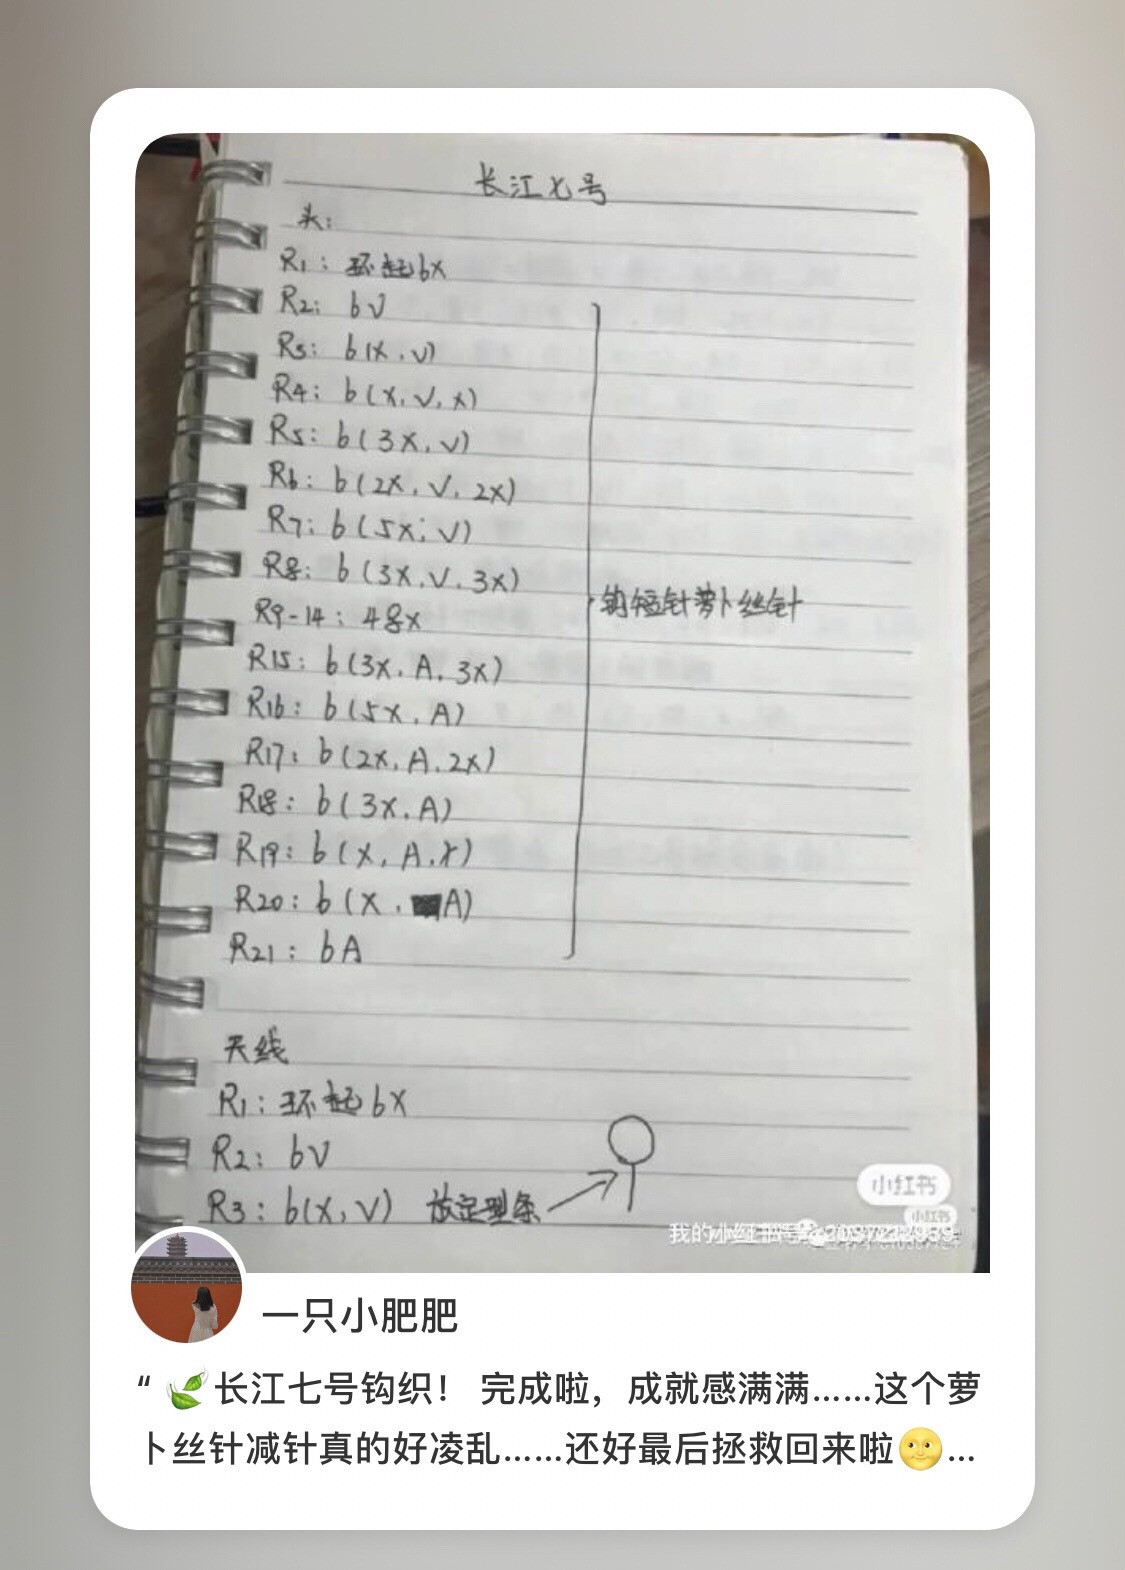 长江七号
头:
R1: 环起6X
R2: 6V
R3: 6(X,V)
R4: 6(X,V,X)
R5: 6(3X,V)
R6: 6(2X,V,2X)
R7: 6(5X,V)
R8: 6(3X,V,3X)
R9-14: 48X
钩短针萝卜丝针
R15: 6(3X,A,3X)
R16: 6(5X,A)
R17: 6(2X,A,2X)
R18: 6(3X,A)
R19: 6(X,A,X)
R20: 6(X,A)
R21: 6A
天线
R1: 环起6X
R2: 6V
R3: 6(X,V) 放定型条
小红书
小红书
我的小红书号
一只小肥肥
“🍃长江七号钩织! 完成啦,成就感满满……这个萝
卜丝针减针真的好凌乱……还好最后拯救回来啦🌝...